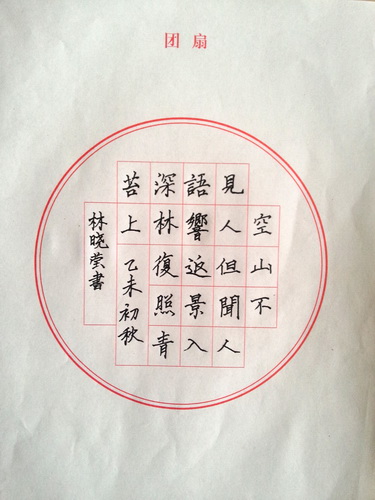 团扇
空山不
見人但聞人
語響返景入
深林復照青
苔上乙未初秋
林晓莹書